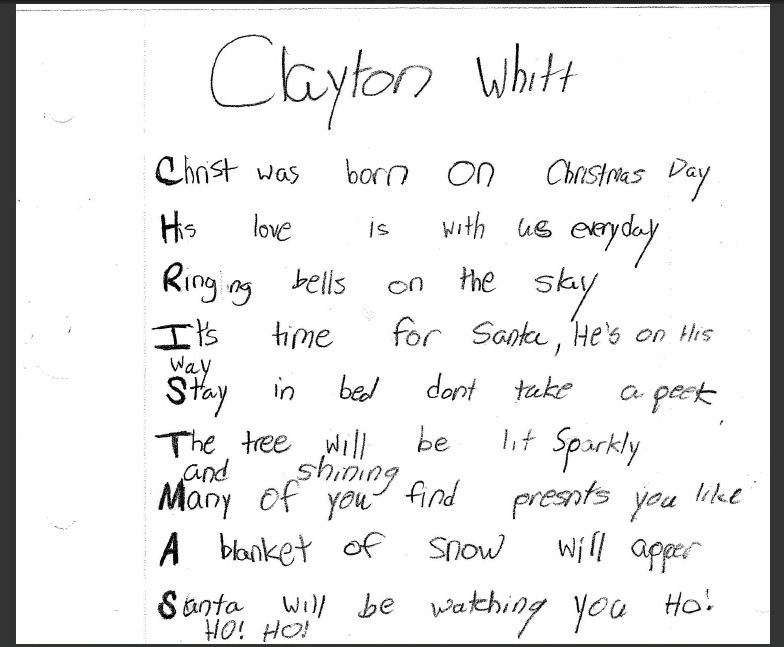 Clayton Whitt
Christ was born on Christmas Day
His love is with us everyday
Ringing bells on the slay
It's time for Santa, He's on His
way
Stay in bed dont take a peek
The tree will be lit Sparkly
and shining
Many of you find presnts you like
A blanket of snow will apper
Santa will be watching you Ho!
HO! HO!